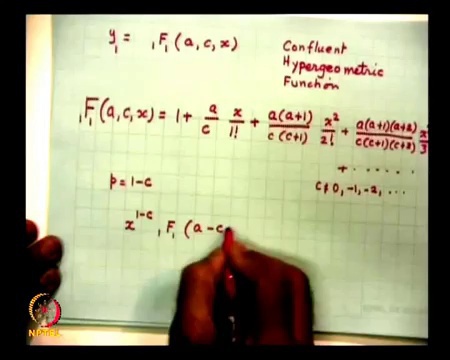 y₁ = ₁F₁ (a, c, x)
Confluent
Hypergeometric
Function
₁F₁ (a, c, x) = 1 + a/c x/1! + a(a+1)/c(c+1) x²/2! + a(a+1)(a+2)/c(c+1)(c+2) x³/3!
+ . . . . . .
c ≠ 0, -1, -2, . . .
p = 1 - c
x^(1-c) ₁F₁ (a - c
NPTEL